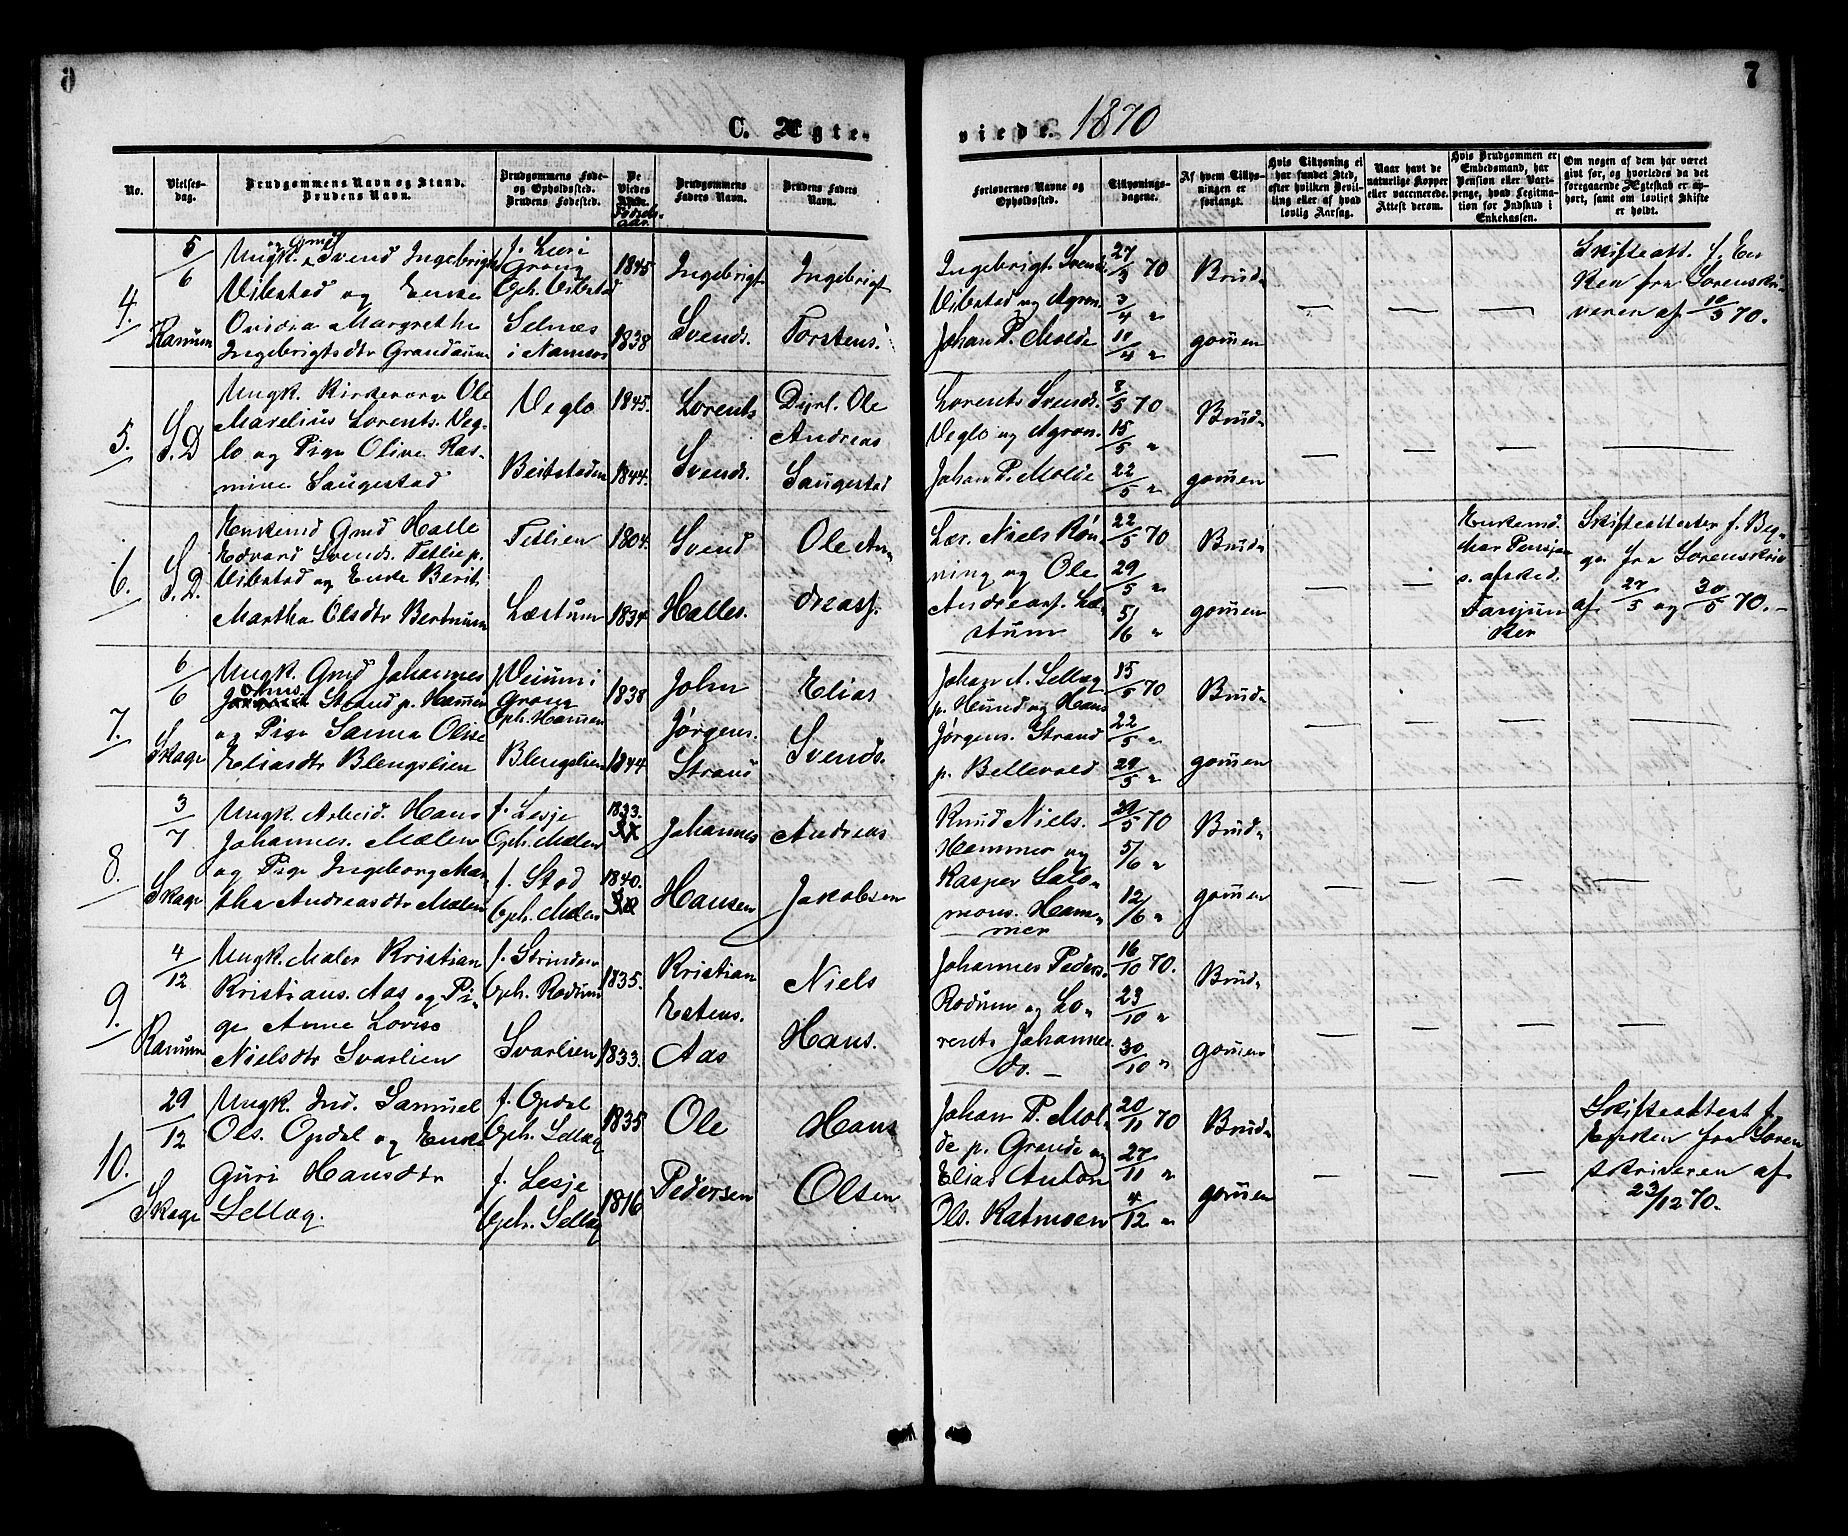 6
7
C. Ægte-
viede. 1870
No.
Vielses-
dag.
Brudgommens Navn og Stand.
Brudens Navn.
Brudgommens Føde-
og Opholdssted.
Brudens Fødested.
De
Viedes
Fødsels-
aar.
Brudgommens
Faders Navn.
Brudens Faders
Navn.
Forlovernes Navne og
Opholdssted.
Tillysnings-
dagene.
Af hvem Tillys-
ningen er
forlangt.
Hvis Tillysning ei
har fundet Sted,
efter hvilken Bevil-
ling eller af hvad
lovlig Aarsag.
Naar havt de
naturlige Kopper
eller vaccinerede.
Attest derom.
Hvis Brudgommen er
Embedsmand, har
Pension eller Vart-
penge, hvad Legitima-
tion for Indskud i
Enkekassen.
Om nogen af dem har været
gift før, og hvorledes da det
foregaaende Ægteskab er op-
hørt, samt om lovligt Skifte
er holdt.
4.
5/6
Ranum
Ungk. og Gmd Svend Ingebrigts.
Vibstad og Enke
Ovidia Margrethe
Ingebrigtsdtr Grandaune
f. Lieri
Grong
Oph. Vibstad
Selnæs
i Namsos
1845
1838
Ingebrigt
Svends.
Ingebrigt
Torstens.
Ingebrigt Svends.
Vibstad og Agron.
Johan P. Molde
27/3 70
3/4 "
10/4 "
Brud-
gommen
Skifteatt. f. En
ken fra Sorenskri-
veren af 10/3 70.
5.
S.D
Ungk. Kirkesanger Ole
Marelius Lorents. Veg-
lo og Pige Olive Ras-
mine Saugestad
Veglo
Beitstaden
1845.
1844.
Lorents
Svends.
Dyrl. Ole
Andreas
Saugestad
Lorents Svends.
Veglo og Agron.
Johan P. Molde
8/5 70
15/5 "
22/5 "
Brud-
gommen
6.
S.D.
Enkemd Gmd Halle
Edvard Svends. Tetlie p.
Vibstad og Enke Berit
Martha Olsdtr Bertnum
Tetlien
Læstum
1804.
1834
Svend
Halles.
Ole An-
dreass.
Lær. Niels Røn-
ning og Ole
Andreass. Læ-
stum
22/5 70
29/5 "
5/6 "
Brud-
gommen
Enkemd.
har Pension
s. afsked.
Fanejun
ker
Skifteattester f. Beg-
ge fra Sorenskriv
af 27/5 og 30/5 70.-
7.
6/6
Skage
Ungk. Gmd Johannes
Johns. Strand p. Hammer
og Pige Sanna Olise
Eliasdtr Blengslien
f. Veium i
Grong
Oph. Hammer
Blengslien
1838
1844
John
Jørgens.
Strand
Elias
Svends.
Johan A. Sellæg
p. Hund og Hans
Jørgens. Strand
p. Bellevold
15/5 70
22/5 "
29/5 "
Brud-
gommen
8.
3/7
Skage
Ungk. Arbeid. Hans
Johannes. Mælen
og Pige Ingeborg Mar-
tha Andreasdtr Mælen
f. Lesje
Oph. Mælen
f. Stod
Oph. Mælen
1833.
1840.
Johannes
Hansen
Andreas
Jakobsen
Knud Niels.
Hammer og
Kasper Salo-
mons. Ham-
mer
29/5 70
5/6 "
12/6 "
Brud-
gommen
9.
4/12
Ranum
Ungk. Maler Kristian
Kristians. Aas og Pi-
ge Anne Lovise
Nielsdtr Svarlien
f. Strinden
Oph. Rodum
Svarlien
1835.
1833.
Kristian
Estens.
Aas
Niels
Hans.
Johannes Peders.
Rodum og Lo-
rents Johannes.
do. -
16/10 70.
23/10 "
30/10 "
Brud-
gommen
10.
29/12
Skage
Ungk. Ind. Samuel
Ols. Opdal og Enke
Guri Hansdtr
Sellæg.
f. Opdal
Oph. Sellæg
f. Lesje
Oph. Sellæg
1835
1816
Ole
Pedersen
Hans
Olsen
Johan P. Mol-
de p. Grande og
Elias Anton
Ols. Katmoen
20/11 70
27/11 "
4/12 "
Brud-
gommen
Skifteattest f.
Enken fra Soren
skriveren af
23/12 70.